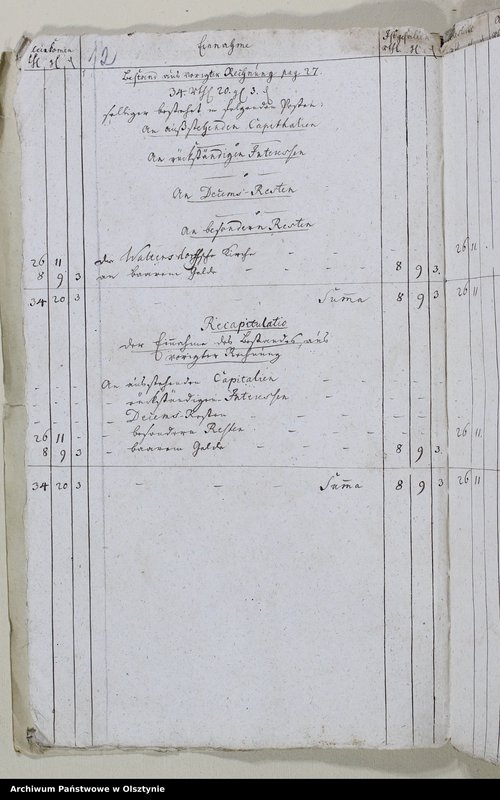 einkomen 12 Einnahme Ist gefallen
rthl gl d rthl gl d
Bestand aus voriger Rechnung pag. 27.
34. rthl 20. gl 3. d
selbiger bestehet in folgenden Posten:
An außstehenden Capithalien
An rückständigen Interessen
An Decems-Resten
An besondern Resten
26 11 die Waltersdorffsche Kirche - - 26 11
8 9 3 an baarem Gelde - - - - 8 9 3.
34 20 3 Summa 8 9 3 26 11
Recapitulatio
der Einnahme des Bestandes aus
voriger Rechnung
- - - An ausstehenden Capitalien -
- - - rückständigen Interessen -
- - - Decems-Resten - - -
26 11 - - besondern Resten - - - 26 11
8 9 3 - baarem Gelde - - - 8 9 3.
34 20 3 - - Summa 8 9 3 26 11
Archiwum Państwowe w Olsztynie